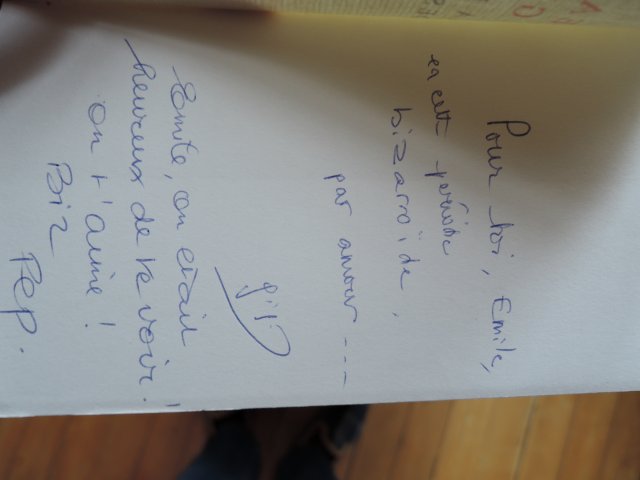 Pour toi, Emile,
en cette période
bizarroïde,
par amour ----
gigi
Emile, on était
heureux de te voir !
on t'aime !
Biz
Pep.